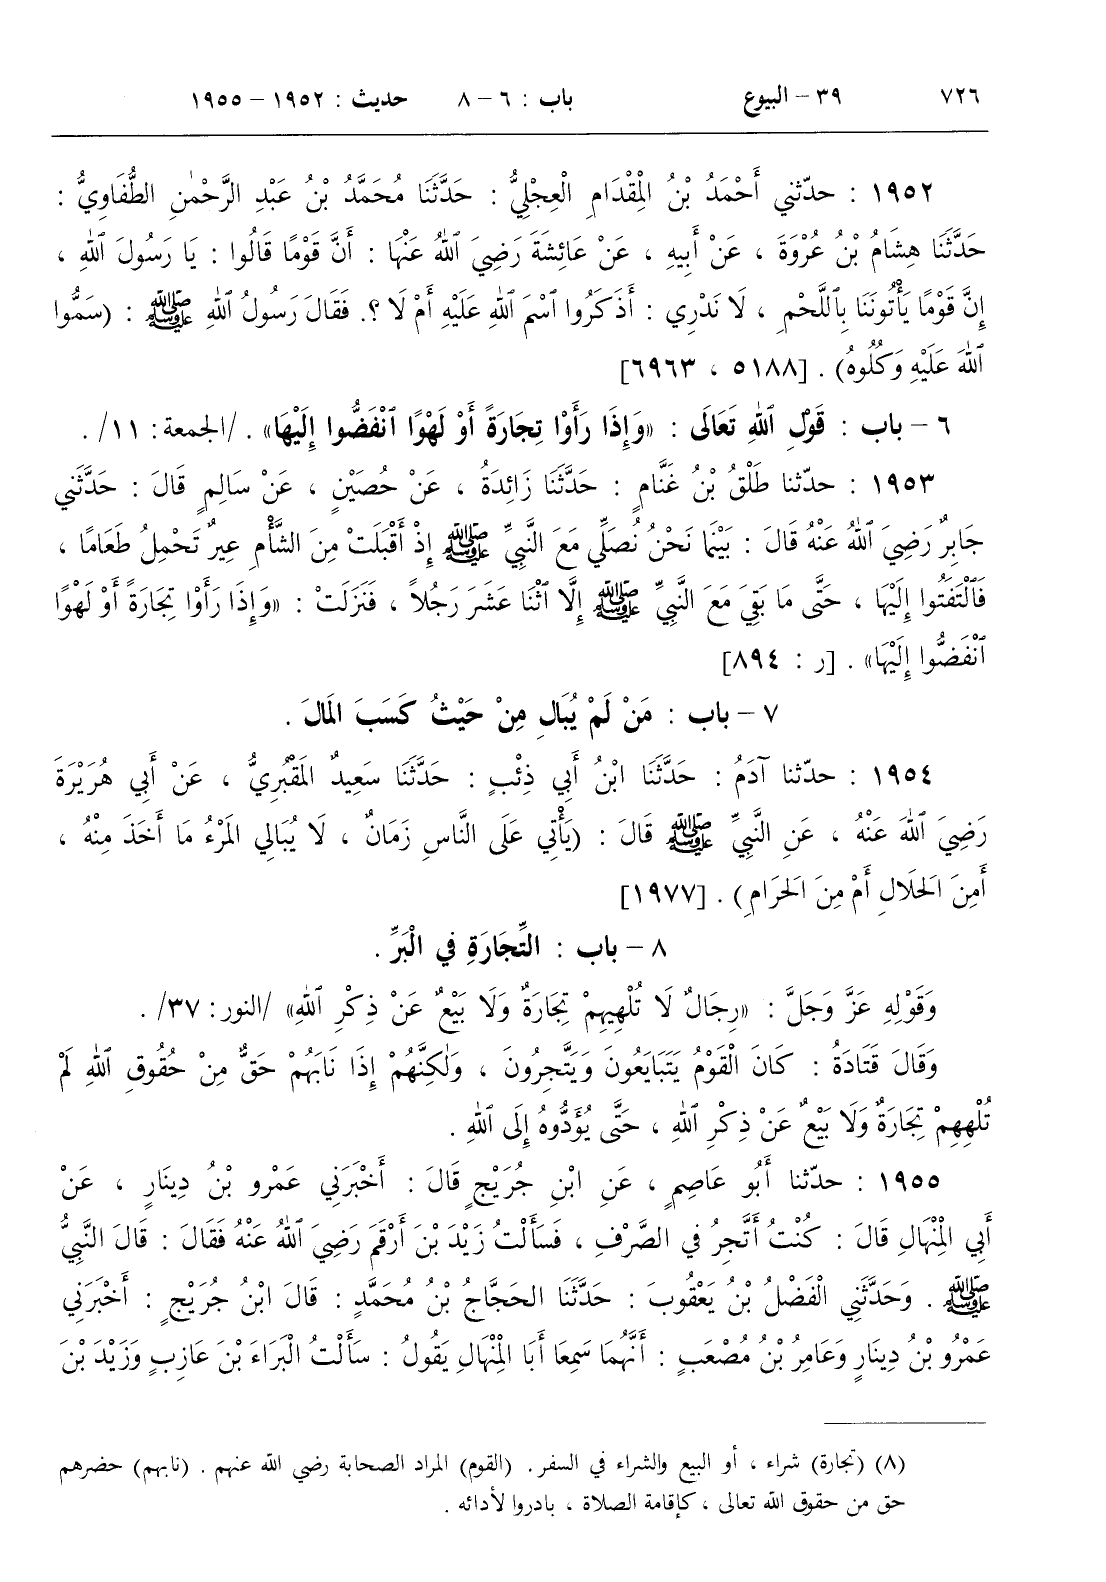 ٧٢٦ ٣٩ – البيوع باب : ٦ – ٨ حديث : ١٩٥٢ – ١٩٥٥
١٩٥٢ : حدّثني أَحْمَدُ بْنُ الْمِقْدَامِ الْعِجْلِيُّ : حَدَّثَنَا مُحَمَّدُ بْنُ عَبْدِ الرَّحْمٰنِ الطُّفَاوِيُّ :
حَدَّثَنَا هِشَامُ بْنُ عُرْوَةَ ، عَنْ أَبِيهِ ، عَنْ عَائِشَةَ رَضِيَ ٱللهُ عَنْهَا : أَنَّ قَوْمًا قَالُوا : يَا رَسُولَ ٱللهِ ،
إِنَّ قَوْمًا يَأْتُونَنَا بِٱللَّحْمِ ، لَا نَدْرِي : أَذَكَرُوا ٱسْمَ ٱللهِ عَلَيْهِ أَمْ لَا ؟. فَقَالَ رَسُولُ ٱللهِ ﷺ : (سَمُّوا
ٱللهَ عَلَيْهِ وَكُلُوهُ) . [٥١٨٨ ، ٦٩٦٣]
٦ – باب : قَوْلِ ٱللهِ تَعَالَى : «وَإِذَا رَأَوْا تِجَارَةً أَوْ لَهْوًا ٱنْفَضُّوا إِلَيْهَا» . /الجمعة: ١١/ .
١٩٥٣ : حدّثنا طَلْقُ بْنُ غَنَّامٍ : حَدَّثَنَا زَائِدَةُ ، عَنْ حُصَيْنٍ ، عَنْ سَالِمٍ قَالَ : حَدَّثَنِي
جَابِرٌ رَضِيَ ٱللهُ عَنْهُ قَالَ : بَيْنَمَا نَحْنُ نُصَلِّي مَعَ النَّبِيِّ ﷺ إِذْ أَقْبَلَتْ مِنَ الشَّأْمِ عِيرٌ تَحْمِلُ طَعَامًا ،
فَٱلْتَفَتُوا إِلَيْهَا ، حَتَّى مَا بَقِيَ مَعَ النَّبِيِّ ﷺ إِلَّا ٱثْنَا عَشَرَ رَجُلاً ، فَنَزَلَتْ : «وَإِذَا رَأَوْا تِجَارَةً أَوْ لَهْوًا
ٱنْفَضُّوا إِلَيْهَا» . [ر : ٨٩٤]
٧ – باب : مَنْ لَمْ يُبَالِ مِنْ حَيْثُ كَسَبَ المَالَ .
١٩٥٤ : حدّثنا آدَمُ : حَدَّثَنَا ابْنُ أَبِي ذِئْبٍ : حَدَّثَنَا سَعِيدٌ المَقْبُرِيُّ ، عَنْ أَبِي هُرَيْرَةَ
رَضِيَ ٱللهُ عَنْهُ ، عَنِ النَّبِيِّ ﷺ قَالَ : (يَأْتِي عَلَى النَّاسِ زَمَانٌ ، لَا يُبَالِي المَرْءُ مَا أَخَذَ مِنْهُ ،
أَمِنَ الحَلَالِ أَمْ مِنَ الحَرَامِ) . [١٩٧٧]
٨ – باب : التِّجَارَةِ فِي الْبَرِّ .
وَقَوْلِهِ عَزَّ وَجَلَّ : «رِجَالٌ لَا تُلْهِيهِمْ تِجَارَةٌ وَلَا بَيْعٌ عَنْ ذِكْرِ ٱللهِ» /النور: ٣٧/ .
وَقَالَ قَتَادَةُ : كَانَ الْقَوْمُ يَتَبَايَعُونَ وَيَتَّجِرُونَ ، وَلٰكِنَّهُمْ إِذَا نَابَهُمْ حَقٌّ مِنْ حُقُوقِ ٱللهِ لَمْ
تُلْهِهِمْ تِجَارَةٌ وَلَا بَيْعٌ عَنْ ذِكْرِ ٱللهِ ، حَتَّى يُؤَدُّوهُ إِلَى ٱللهِ .
١٩٥٥ : حدّثنا أَبُو عَاصِمٍ ، عَنِ ابْنِ جُرَيْجٍ قَالَ : أَخْبَرَنِي عَمْرُو بْنُ دِينَارٍ ، عَنْ
أَبِي الْمِنْهَالِ قَالَ : كُنْتُ أَتَّجِرُ فِي الصَّرْفِ ، فَسَأَلْتُ زَيْدَ بْنَ أَرْقَمَ رَضِيَ ٱللهُ عَنْهُ فَقَالَ : قَالَ النَّبِيُّ
ﷺ . وَحَدَّثَنِي الْفَضْلُ بْنُ يَعْقُوبَ : حَدَّثَنَا الحَجَّاجُ بْنُ مُحَمَّدٍ : قَالَ ابْنُ جُرَيْجٍ : أَخْبَرَنِي
عَمْرُو بْنُ دِينَارٍ وَعَامِرُ بْنُ مُصْعَبٍ : أَنَّهُمَا سَمِعَا أَبَا الْمِنْهَالِ يَقُولُ : سَأَلْتُ الْبَرَاءَ بْنَ عَازِبٍ وَزَيْدَ بْنَ
(٨) (تجارة) شراء ، أو البيع والشراء في السفر . (القوم) المراد الصحابة رضي الله عنهم . (نابهم) حضرهم
حق من حقوق الله تعالى ، كإقامة الصلاة ، بادروا لأدائه .